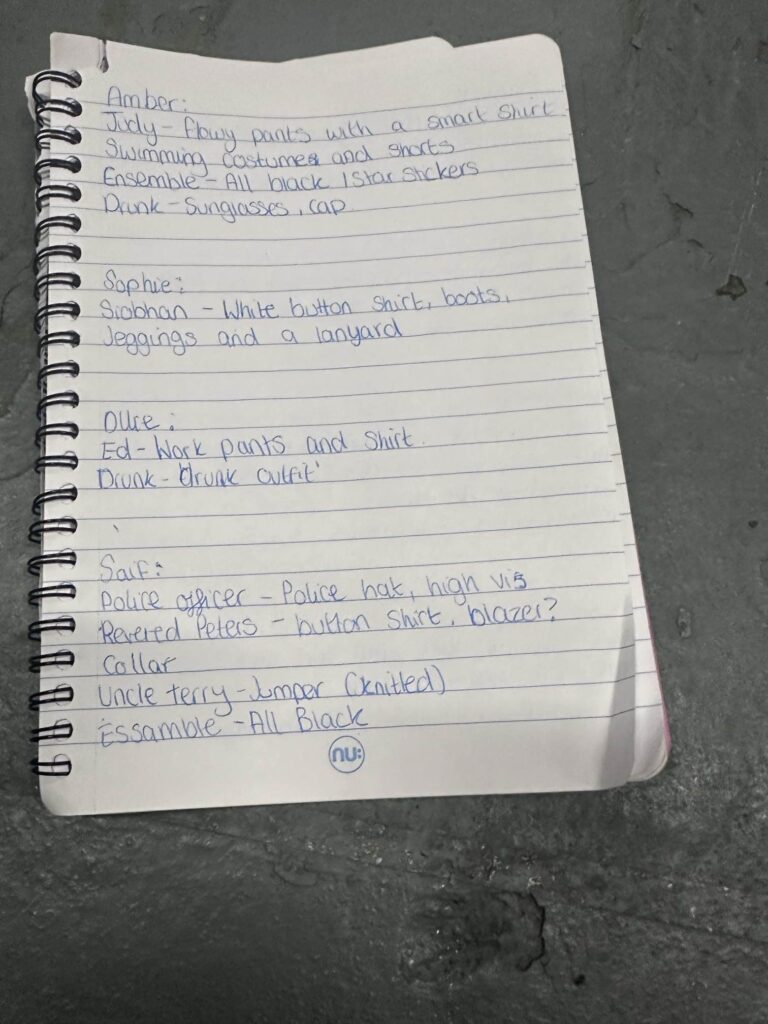 Amber:
Judy - flowy pants with a smart shirt.
Swimming costumes and shorts
Ensemble - All black / Star stickers
Drunk - Sunglasses, cap
Sophie:
Siobhan - White button shirt, boots,
Jeggings and a lanyard
Ollie:
Ed - Work pants and shirt.
Drunk - 'drunk outfit'
Saif:
Police officer - Police hat, high vis
Revered Peters - button shirt, blazer?
Collar
Uncle terry - Jumper (knitted)
Essamble - All Black
nu: